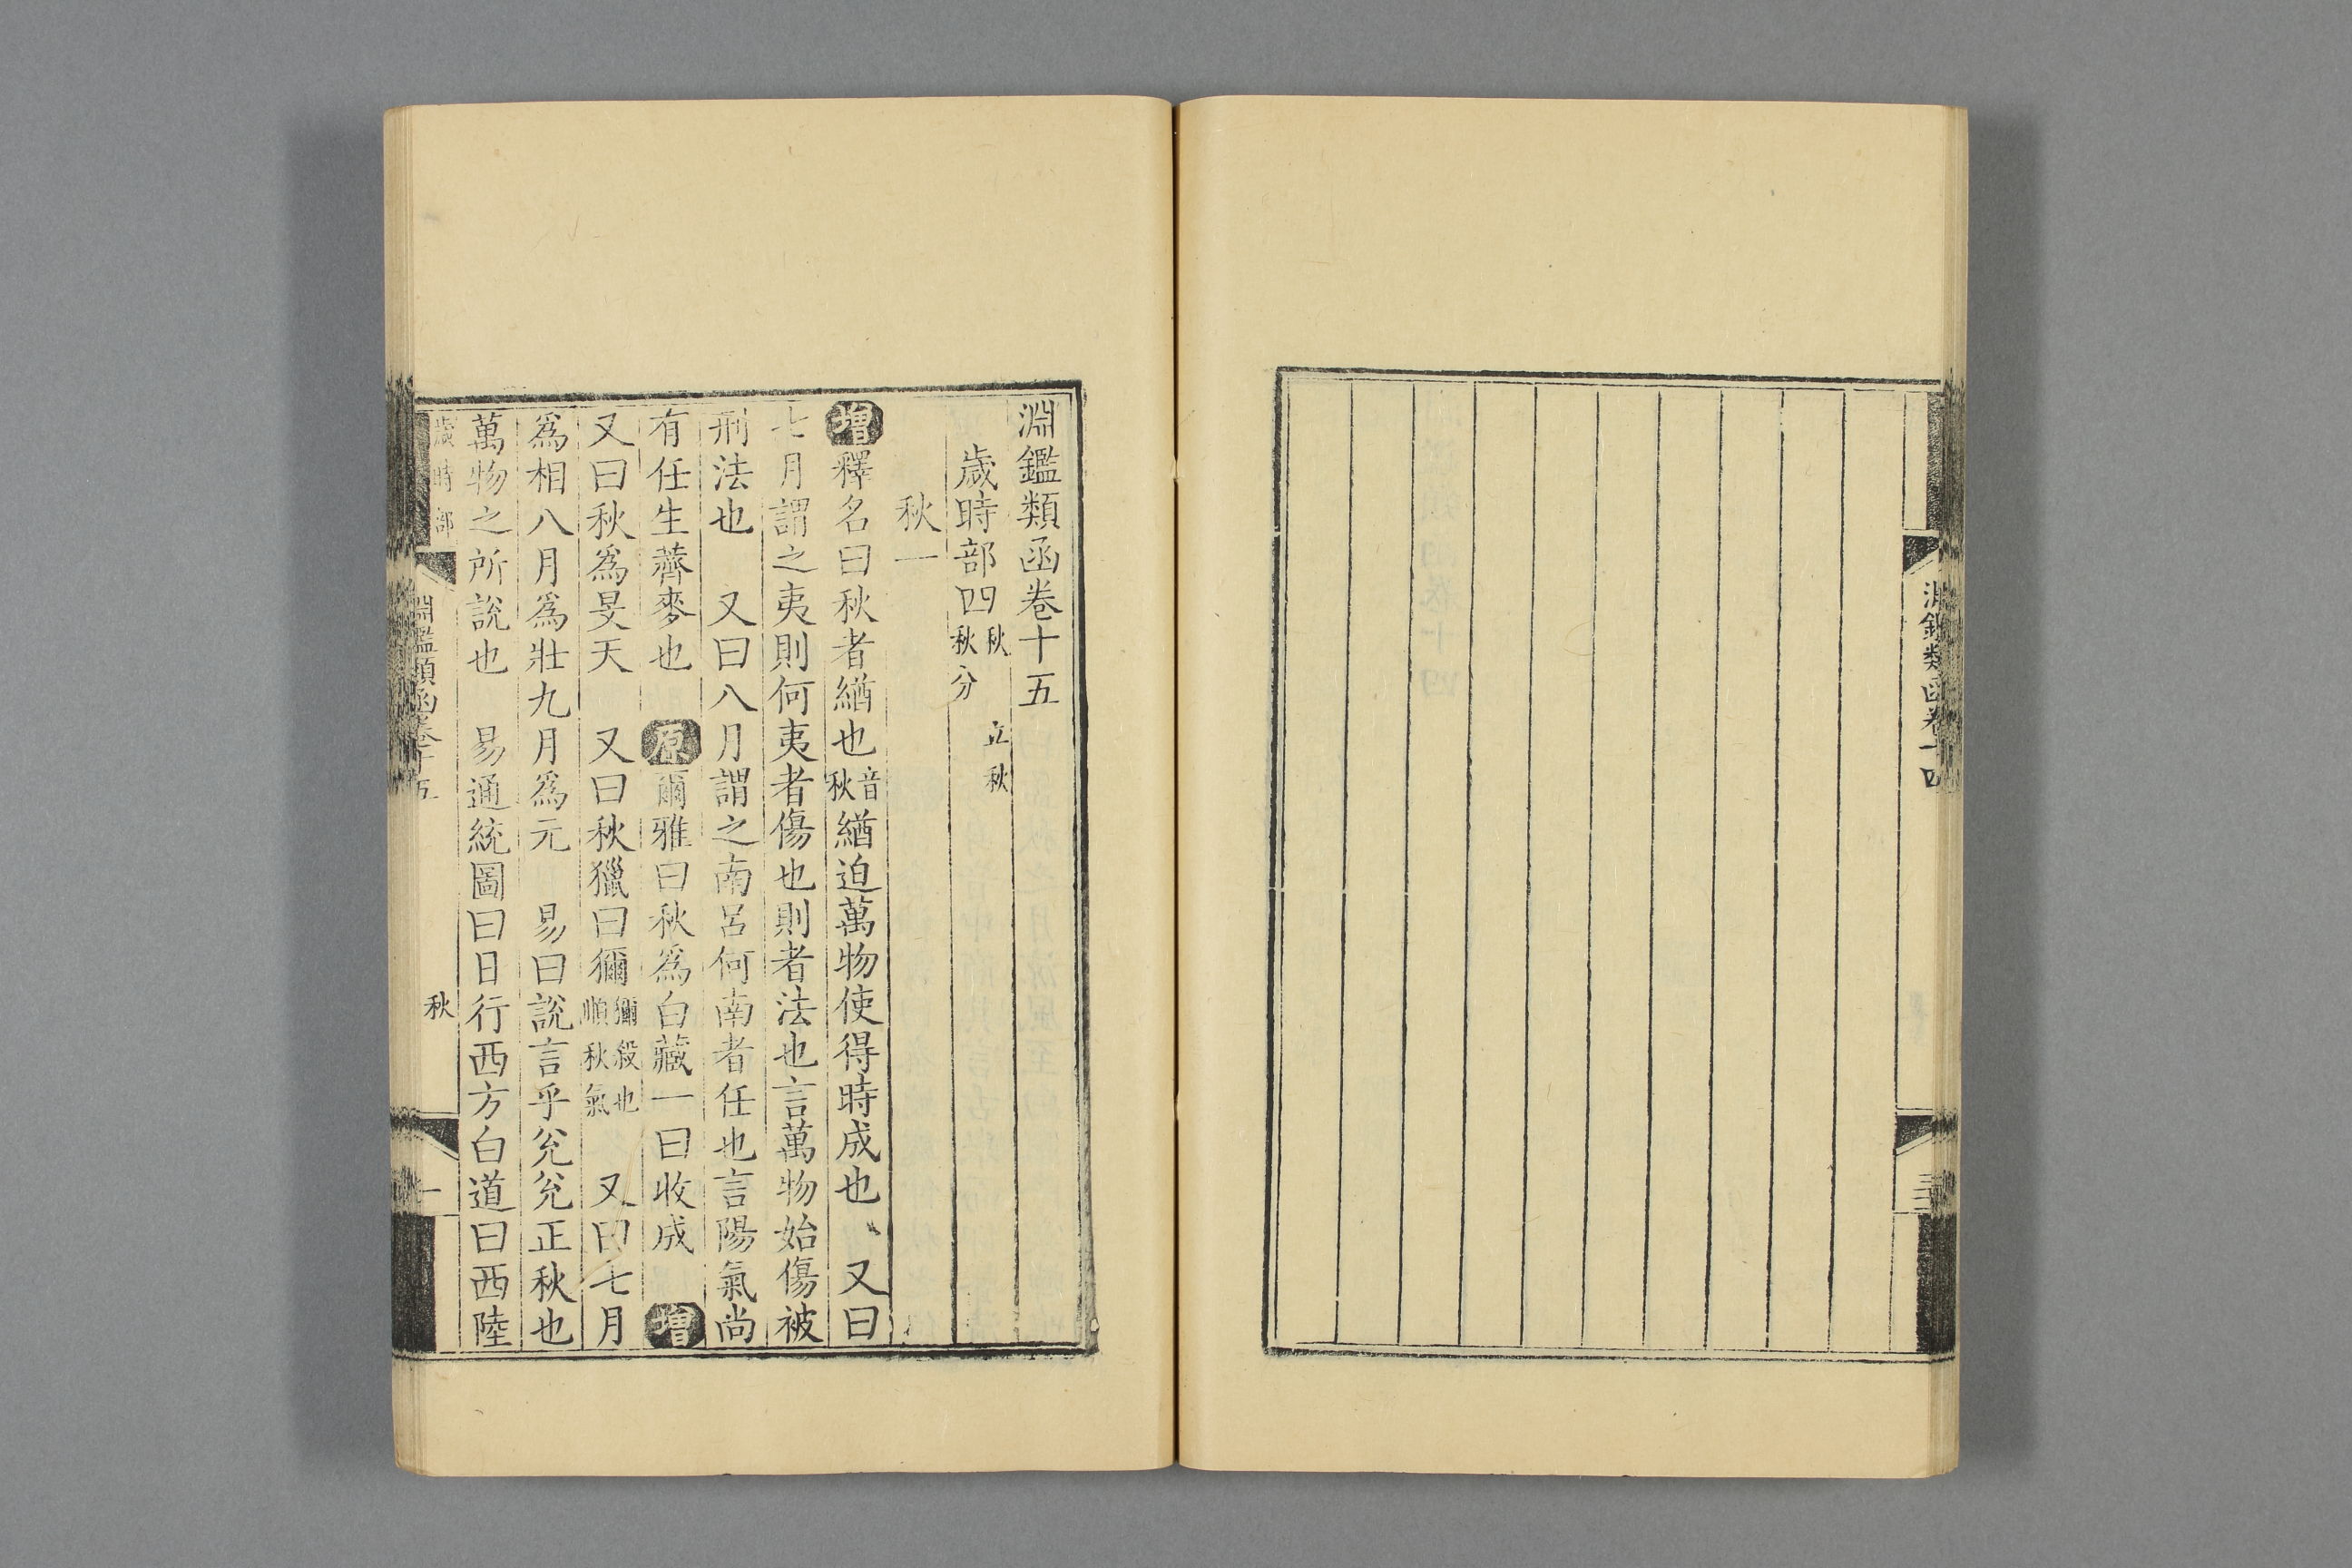 淵鑑類函卷十四
三十二
淵鑑類函卷十五
歲時部四秋 立秋 秋分
秋一
增釋名曰秋者緧也音秋緧迫萬物使得時成也 又曰
七月謂之夷則何夷者傷也則者法也言萬物始傷被
刑法也 又曰八月謂之南呂何南者任也言陽氣尚
有任生薺麥也 原爾雅曰秋爲白藏一曰收成 增
又曰秋爲旻天 又曰秋獵曰獮獮殺也順秋氣 又曰七月
爲相八月爲壯九月爲元 易曰說言乎兊兊正秋也
萬物之所說也 易通統圖曰日行西方白道曰西陸
歲時部 淵鑑類函卷十五 秋 一